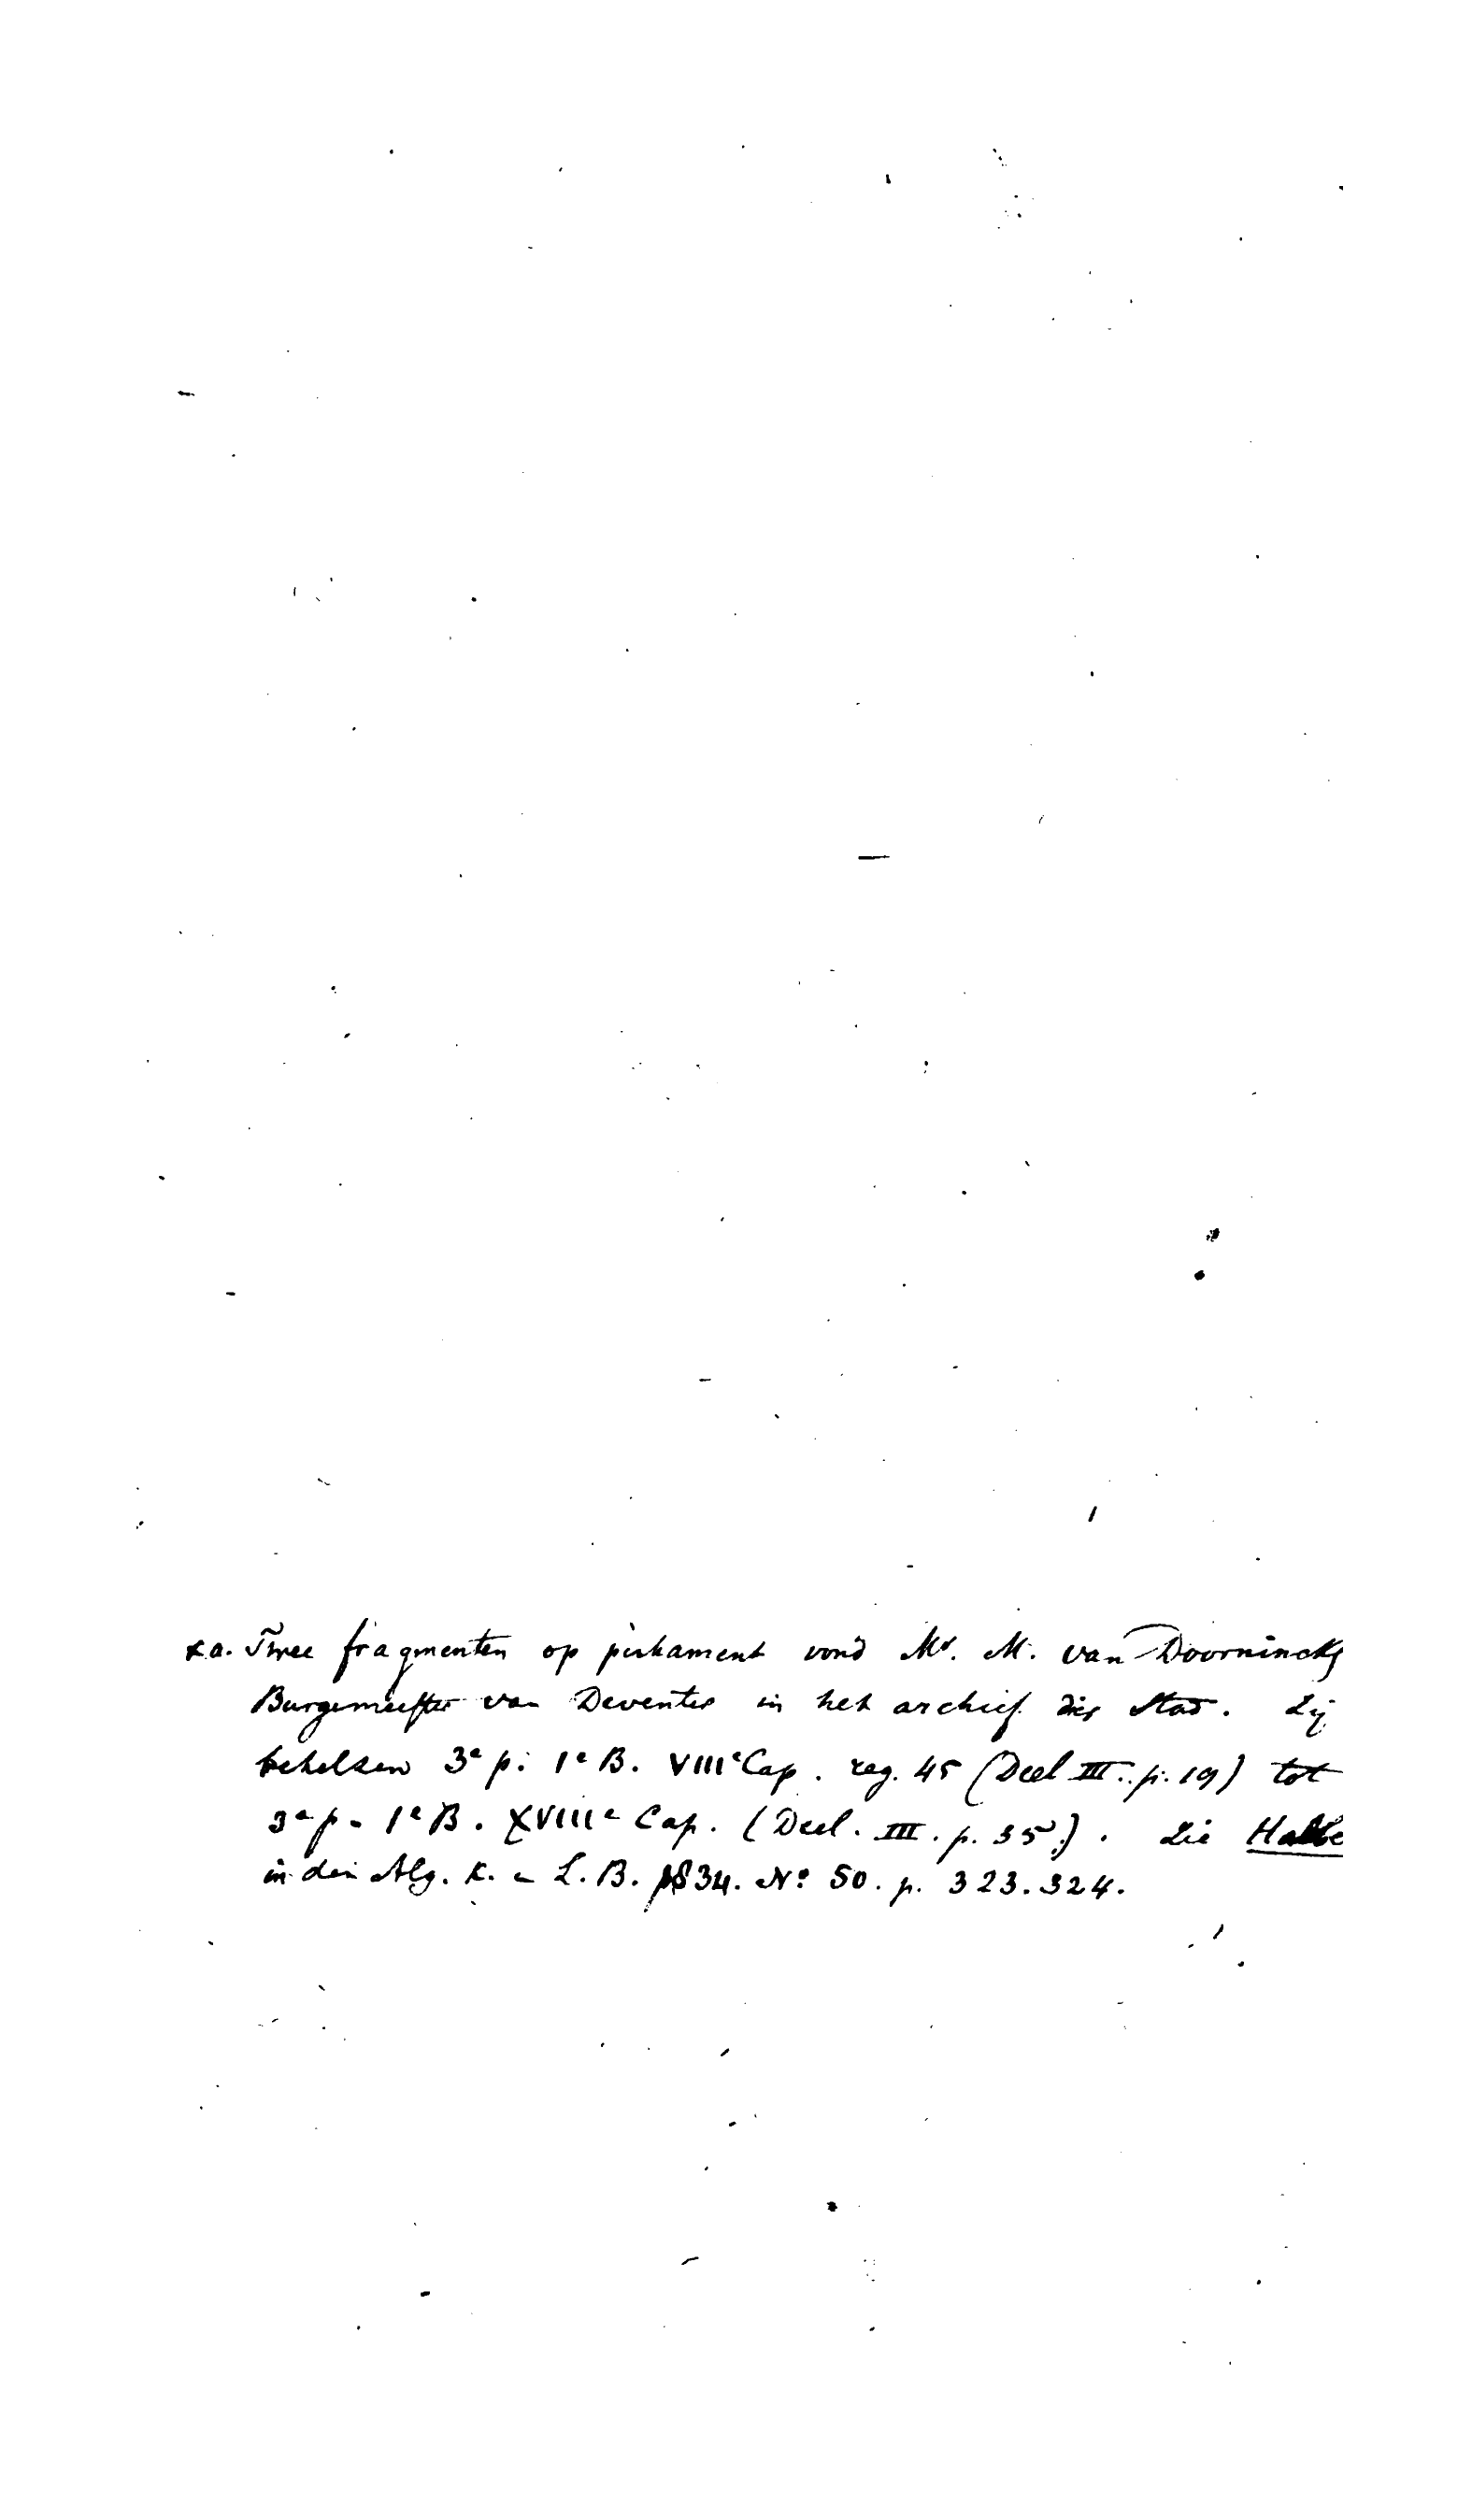 x.a. Twee fragmenten op perkament vond Mr. M. van Doorninck,
Burgemeester van Deventer in het archief dier Stad. Zij
behelsen 3e p. 1e B. VIIIe Cap. reg. 45 (Deel III. p. 19) tot
3e p. 1e B. XVIIIe Cap. (Deel. III. p. 35.). Zie Halbe
in den Alg. K. e L. B. 1834. No 50. p. 323. 324.